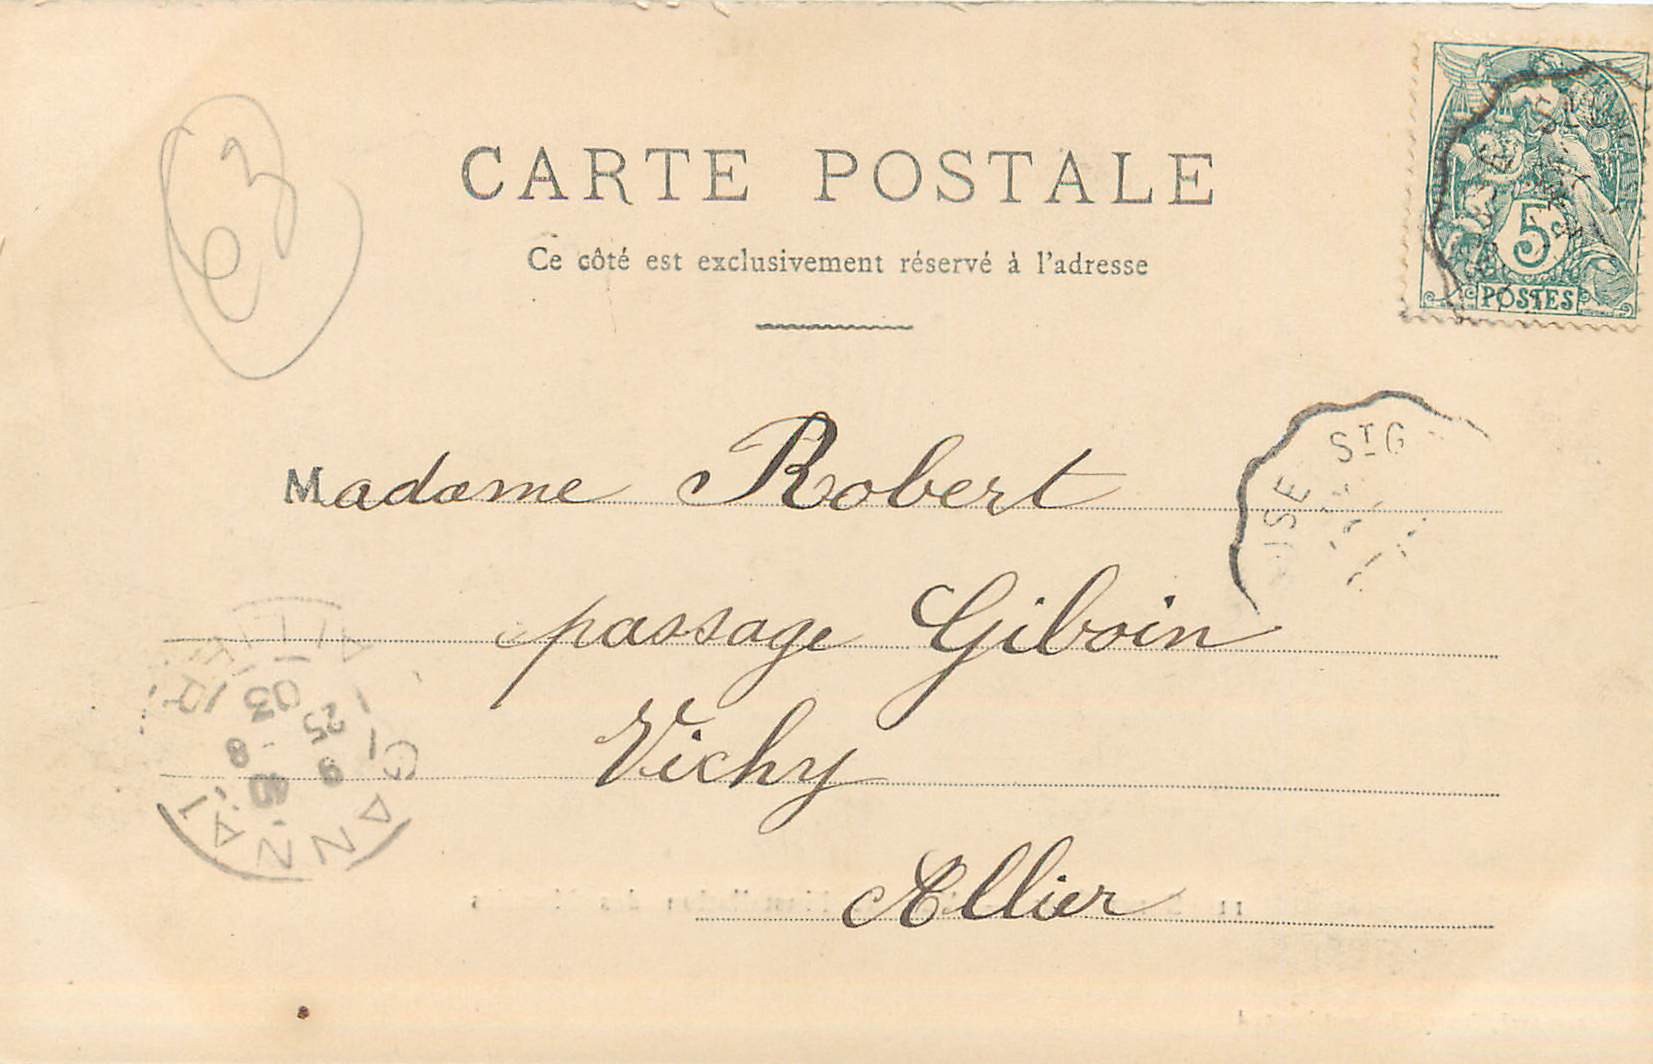 63
CARTE POSTALE
Ce côté est exclusivement réservé à l'adresse
5
POSTES
Madame Robert
passage Giboin
Vichy
Allier
USE ST G
GANNAT
9 25
8 03
40